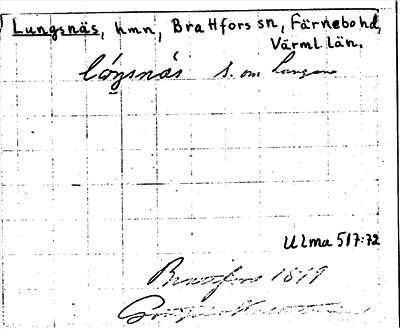 Lungsnäs, hmn, Brattfors sn, Färnebo hd,
Värml. län.
s. om Lungen
ULma 517:72
Brattfors 1879